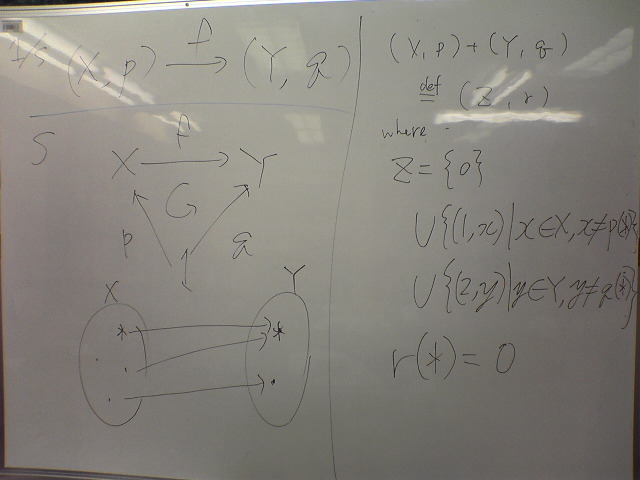 1/S (X, p) f→ (Y, q)
S
f
X → Y
p q
1
X Y
*→*
(X, p) + (Y, q)
def
= (Z, r)
where
Z = {0}
∪{(1,x)|x∈X, x≠p(*)}
∪{(2,y)|y∈Y, y≠q(*)}
r(*) = 0